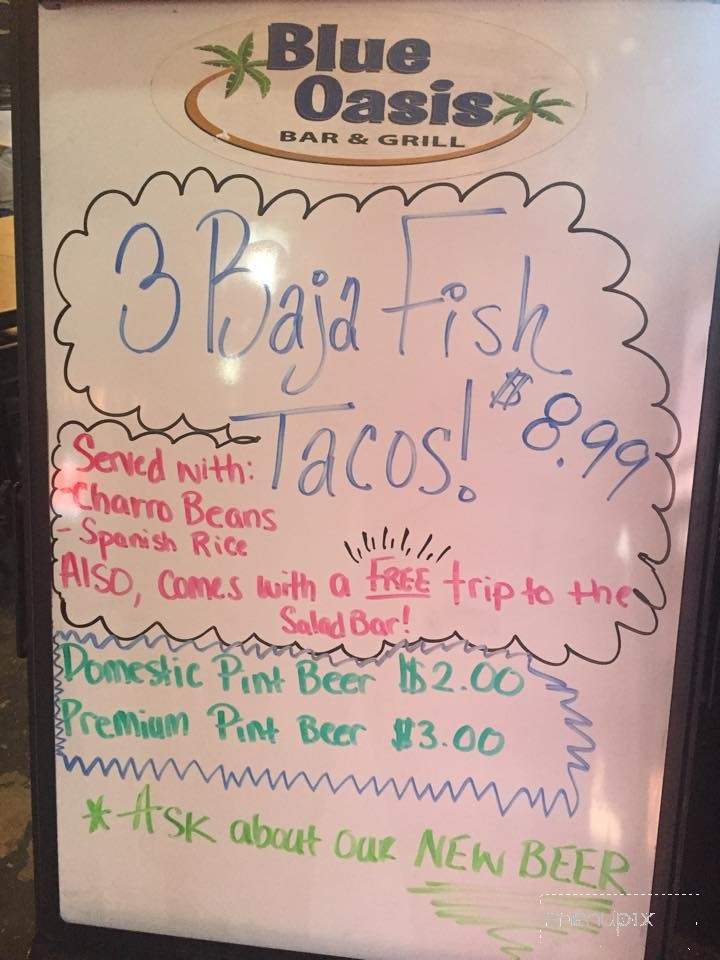 Blue
Oasis
BAR & GRILL
3 Baja Fish
Tacos! $8.99
Served with:
- Charro Beans
- Spanish Rice
Also, comes with a FREE trip to the
Salad Bar!
Domestic Pint Beer $2.00
Premium Pint Beer $3.00
*Ask about our NEW BEER
menupix